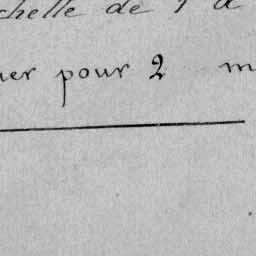 chelle de 1 à
er pour 2 m